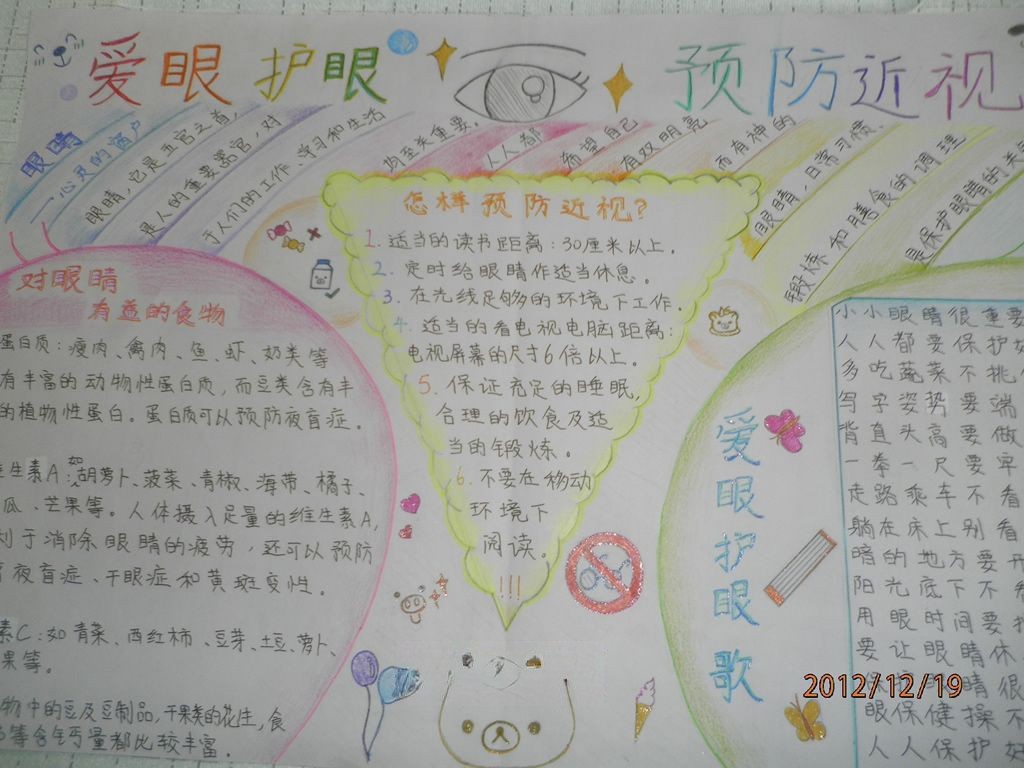 爱眼护眼 预防近视
眼睛
一心灵的窗户
眼睛,它是五官之首,
是人的重要器官,对
于人们的工作、学习和生活
均至关重要。
人人都
希望自己
有双明亮
而有神的
眼睛,日常习惯、
锻炼和用膳食的调理
是保护眼睛的
怎样预防近视?
1.适当的读书距离:30厘米以上。
2.定时给眼睛作适当休息。
3.在光线足够的环境下工作。
4.适当的看电视电脑距离:
电视屏幕的尺寸6倍以上。
5.保证充足的睡眠,
合理的饮食及适
当的锻炼。
6.不要在移动
环境下
阅读。
!!!
对眼睛
有益的食物
蛋白质:瘦肉、禽肉、鱼、虾、奶类等
有丰富的动物性蛋白质,而豆类含有丰
的植物性蛋白。蛋白质可以预防夜盲症。
生素A:如胡萝卜、菠菜、青椒、海带、橘子、
瓜、芒果等。人体摄入足量的维生素A,
利于消除眼睛的疲劳,还可以预防
夜盲症、干眼症和黄斑变性。
素C:如青菜、西红柿、豆芽、土豆、萝卜、
果等。
物中的豆及豆制品,干果类的花生,食
等含钙量都比较丰富。
爱眼护眼歌
小小眼睛很重要
人人都要保护好
多吃蔬菜不挑
写字姿势要端
背直头高要做
一拳一尺要牢
走路乘车不看
躺在床上别看
暗的地方要开
阳光底下不看
用眼时间要
要让眼睛休
保护眼睛很
眼保健操不
人人保护好
2012/12/19